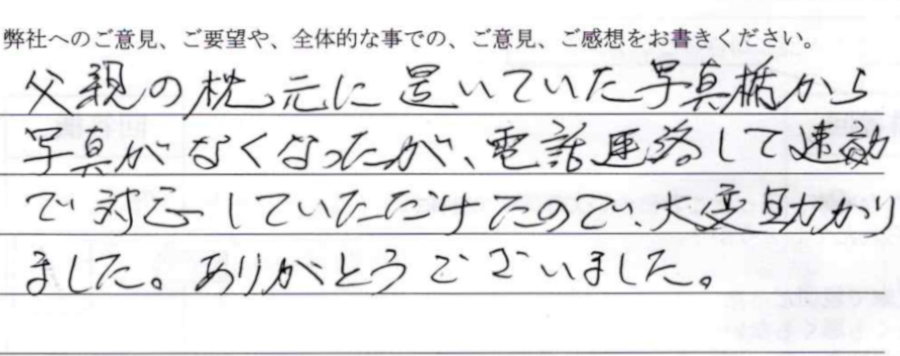 弊社へのご意見、ご要望や、全体的な事での、ご意見、ご感想をお書きください。
父親の枕元に置いていた写真楯から
写真がなくなったが、電話連絡して速効
で対応していただけたので、大変助かり
ました。ありがとうございました。